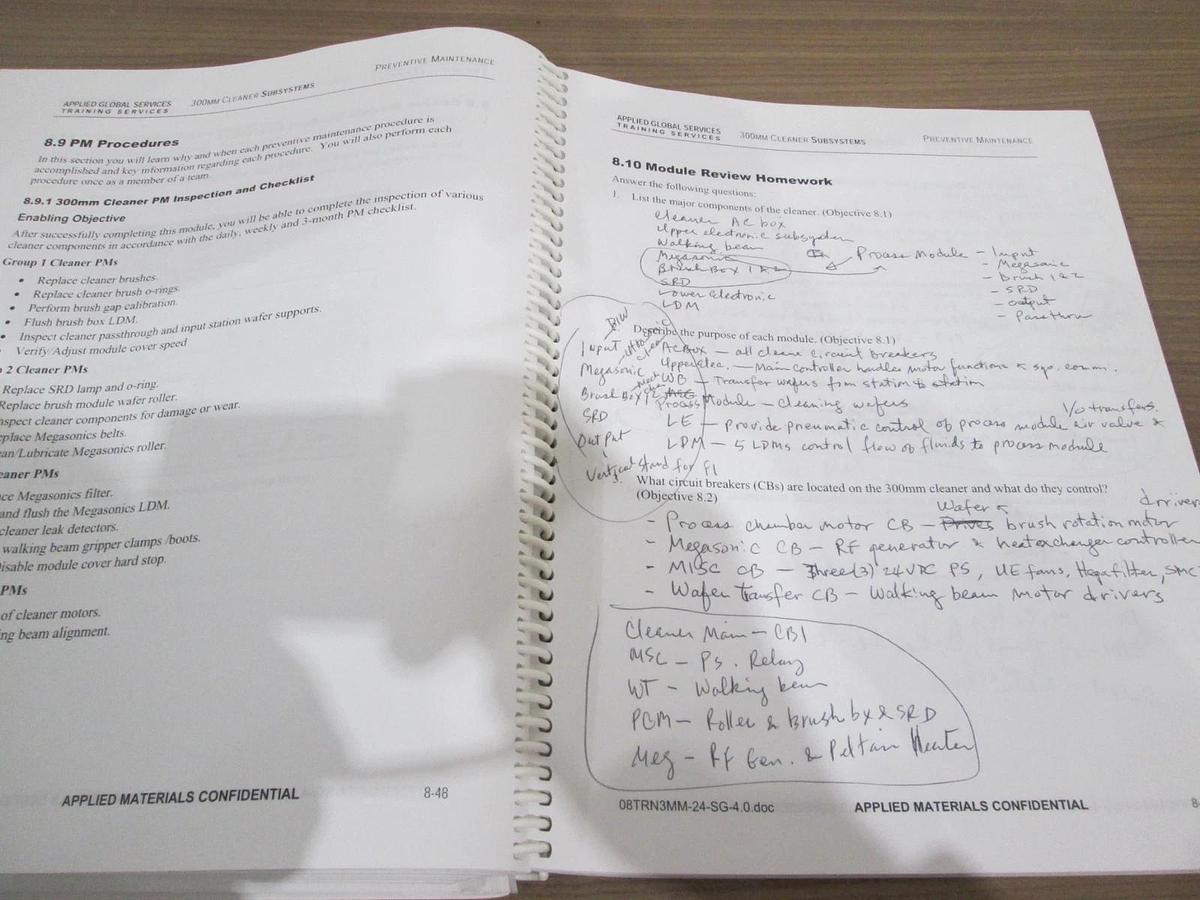 PREVENTIVE MAINTENANCE
APPLIED GLOBAL SERVICES 300MM CLEANER SUBSYSTEMS
TRAINING SERVICES
8.9 PM Procedures
In this section you will learn why and when each preventive maintenance procedure is
accomplished and key information regarding each procedure. You will also perform each
procedure once as a member of a team.
8.9.1 300mm Cleaner PM Inspection and Checklist
Enabling Objective
After successfully completing this module, you will be able to complete the inspection of various
cleaner components in accordance with the daily, weekly and 3-month PM checklist.
Group 1 Cleaner PMs
• Replace cleaner brushes.
• Replace cleaner brush o-rings.
• Perform brush gap calibration.
• Flush brush box LDM.
• Inspect cleaner passthrough and input station wafer supports.
• Verify/Adjust module cover speed
2 Cleaner PMs
Replace SRD lamp and o-ring.
Replace brush module wafer roller.
nspect cleaner components for damage or wear.
eplace Megasonics belts.
ean/Lubricate Megasonics roller.
eaner PMs
ce Megasonics filter.
and flush the Megasonics LDM.
cleaner leak detectors.
walking beam gripper clamps /boots.
isable module cover hard stop.
PMs
of cleaner motors.
ng beam alignment.
APPLIED MATERIALS CONFIDENTIAL 8-48
APPLIED GLOBAL SERVICES
TRAINING SERVICES 300MM CLEANER SUBSYSTEMS PREVENTIVE MAINTENANCE
8.10 Module Review Homework
Answer the following questions:
1. List the major components of the cleaner. (Objective 8.1)
Cleaner AC box
Upper electronic subsystem
Walking beam
Megasonic
Brush Box 1 & 2
SRD
Lower Electronic
LDM
Process Module - Input
- Megasonic
- Brush 1 & 2
- SRD
- output
- Passthru
Describe the purpose of each module. (Objective 8.1)
Input
Megasonic
Brush Box 1/2
SRD
Output
Vertical stand for FI
AC Box — all cleaner circuit breakers
Upper elec. — Main controller handles motor functions & sys. comm.
WB — Transfer wafers from station to station
Process Module — Cleaning wafers
LE — Provide pneumatic control of process module air valve & I/O transfers.
LDM — 5 LDMs control flow of fluids to process module
What circuit breakers (CBs) are located on the 300mm cleaner and what do they control?
(Objective 8.2)
- Process chamber motor CB — Wafer & brush rotation motor drivers
- Megasonic CB — RF generator & heatexchanger controller
- MISC CB — Three(3) 24VDC PS, UE fans, Hepafilter, SMC
- Wafer Transfer CB — Walking beam motor drivers
Cleaner Main — CB1
MSC — Ps. Relay
WT — Walking beam
PCM — Roller & Brush bx & SRD
Meg — RF Gen. & Peltair Heater
08TRN3MM-24-SG-4.0.doc APPLIED MATERIALS CONFIDENTIAL 8-